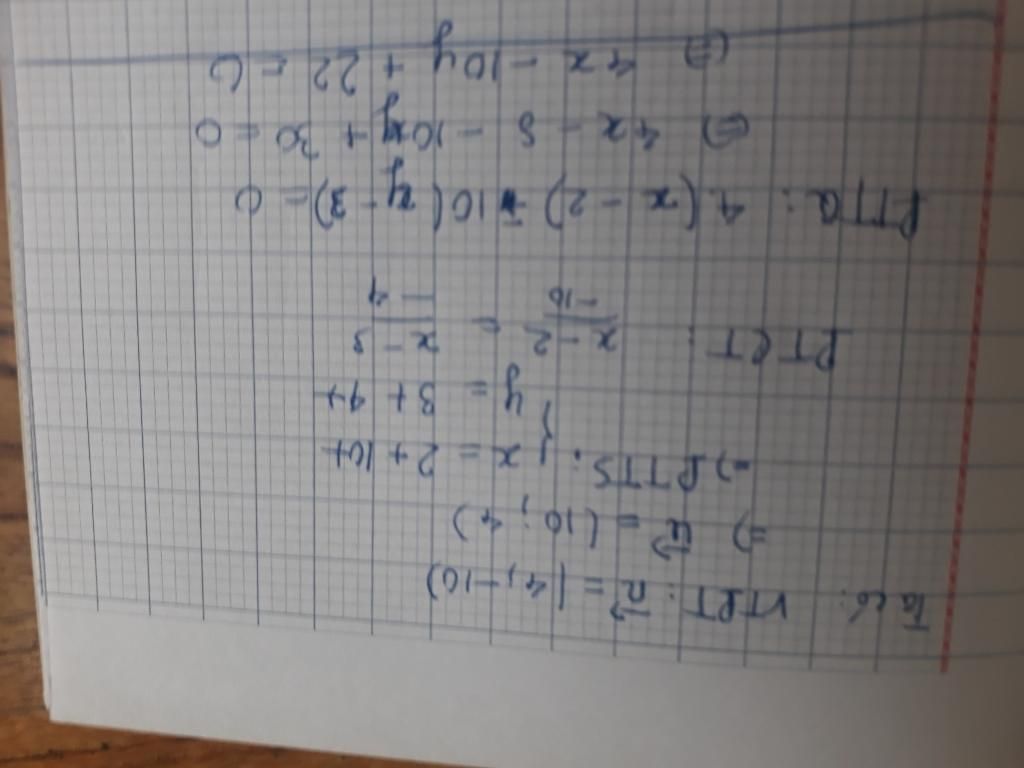 Ta có: VTPT: n⃗ = (4; -10)
=> u⃗ = (10; 4)
=> PTTS: { x = 2 + 10t
y = 3 + 4t
PTCT: (x - 2)/(-10) = (x - 3)/(-4)
PTTQ: 4.(x - 2) - 10(y - 3) = 0
(=) 4x - 8 - 10y + 30 = 0
(=) 4x - 10y + 22 = 0